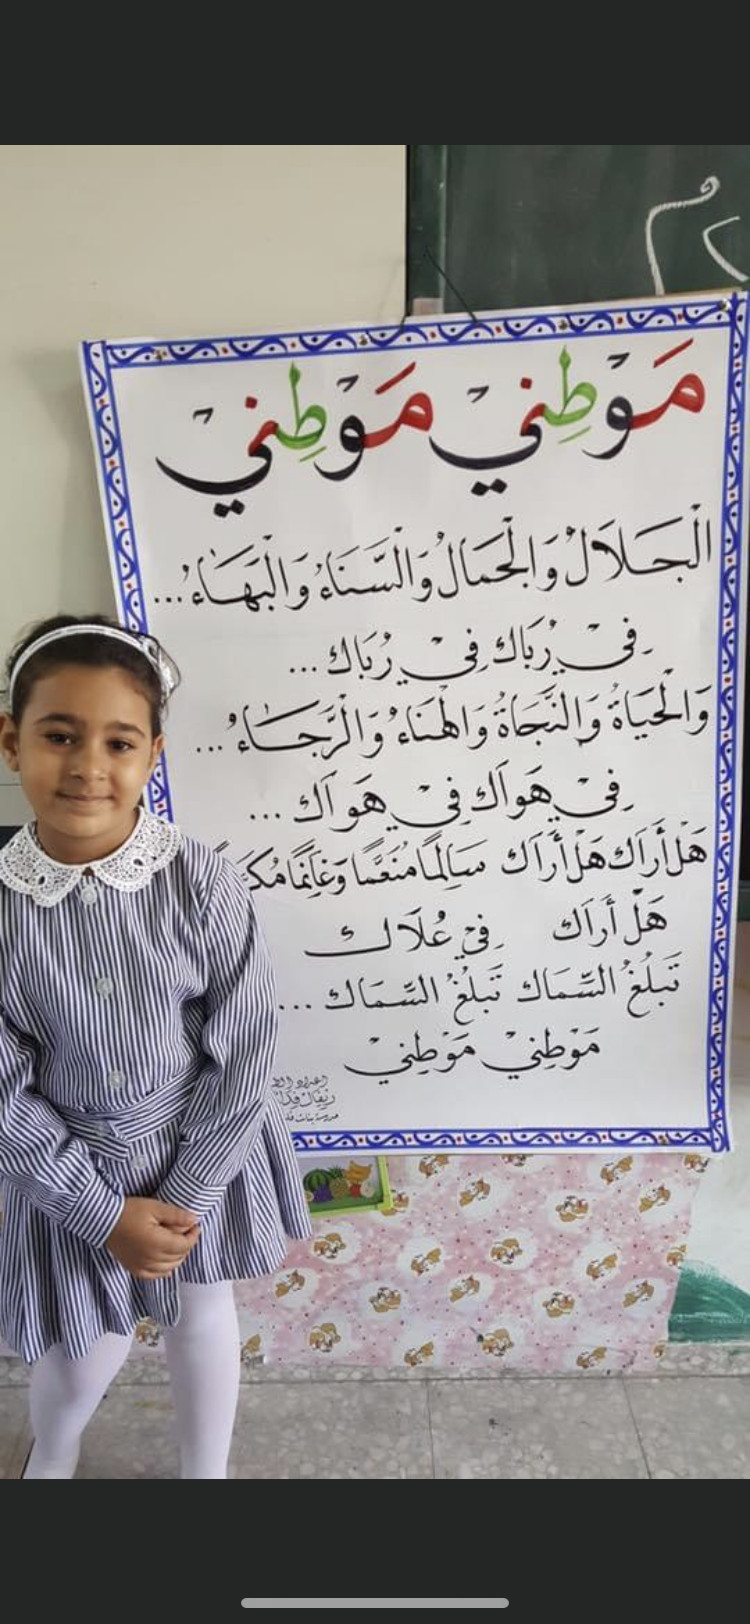 م٢
مَوْطِني مَوْطِني
الْجَلَالُ وَالْجَمَالُ وَالْسَّنَاءُ وَالْبَهَاءُ...
فِيْ رُبَاك فِيْ رُبَاك...
وَالْحَيَاةُ وَالْنَّجَاةُ وَالْهَنَاءُ وَالْرَّجَاءُ...
فِيْ هَوَاك فِيْ هَوَاك...
هَلْ أَرَاك هَلْ أَرَاك سَالِمًا مُنَعَّمًا وَغَانِمًا
هَلْ أَرَاك فِيْ عُلَاك
تَبلُغُ السِّمَاك تَبلُغُ السِّمَاك...
مَوْطِنيْ مَوْطِنيْ
اعداد
مدرسة بنات